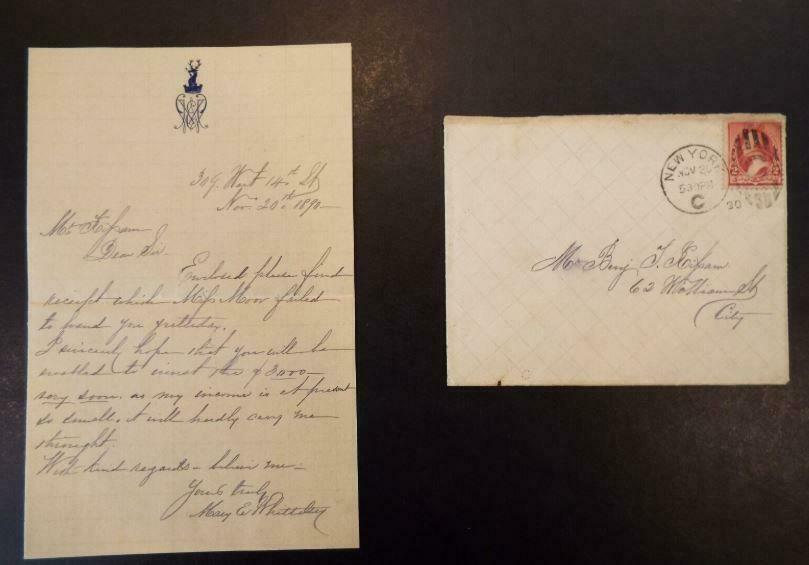 309. West 14th St
Nov. 20th 1890—
Mr Kipam
Dear Sir.
Enclosed please find
receipt which Miss Moor failed
to send you yesterday.
I sincerely hope that you will be
enabled to invest the $3000—
very soon. as my income is at present
so small, it will hardly carry me
through.
With kind regards— believe me—
Yours truly
Mary E Whittelsey
NEW YORK
NOV 20
530PM
C
30
Mr Benj F. Kipam
62 William St
City